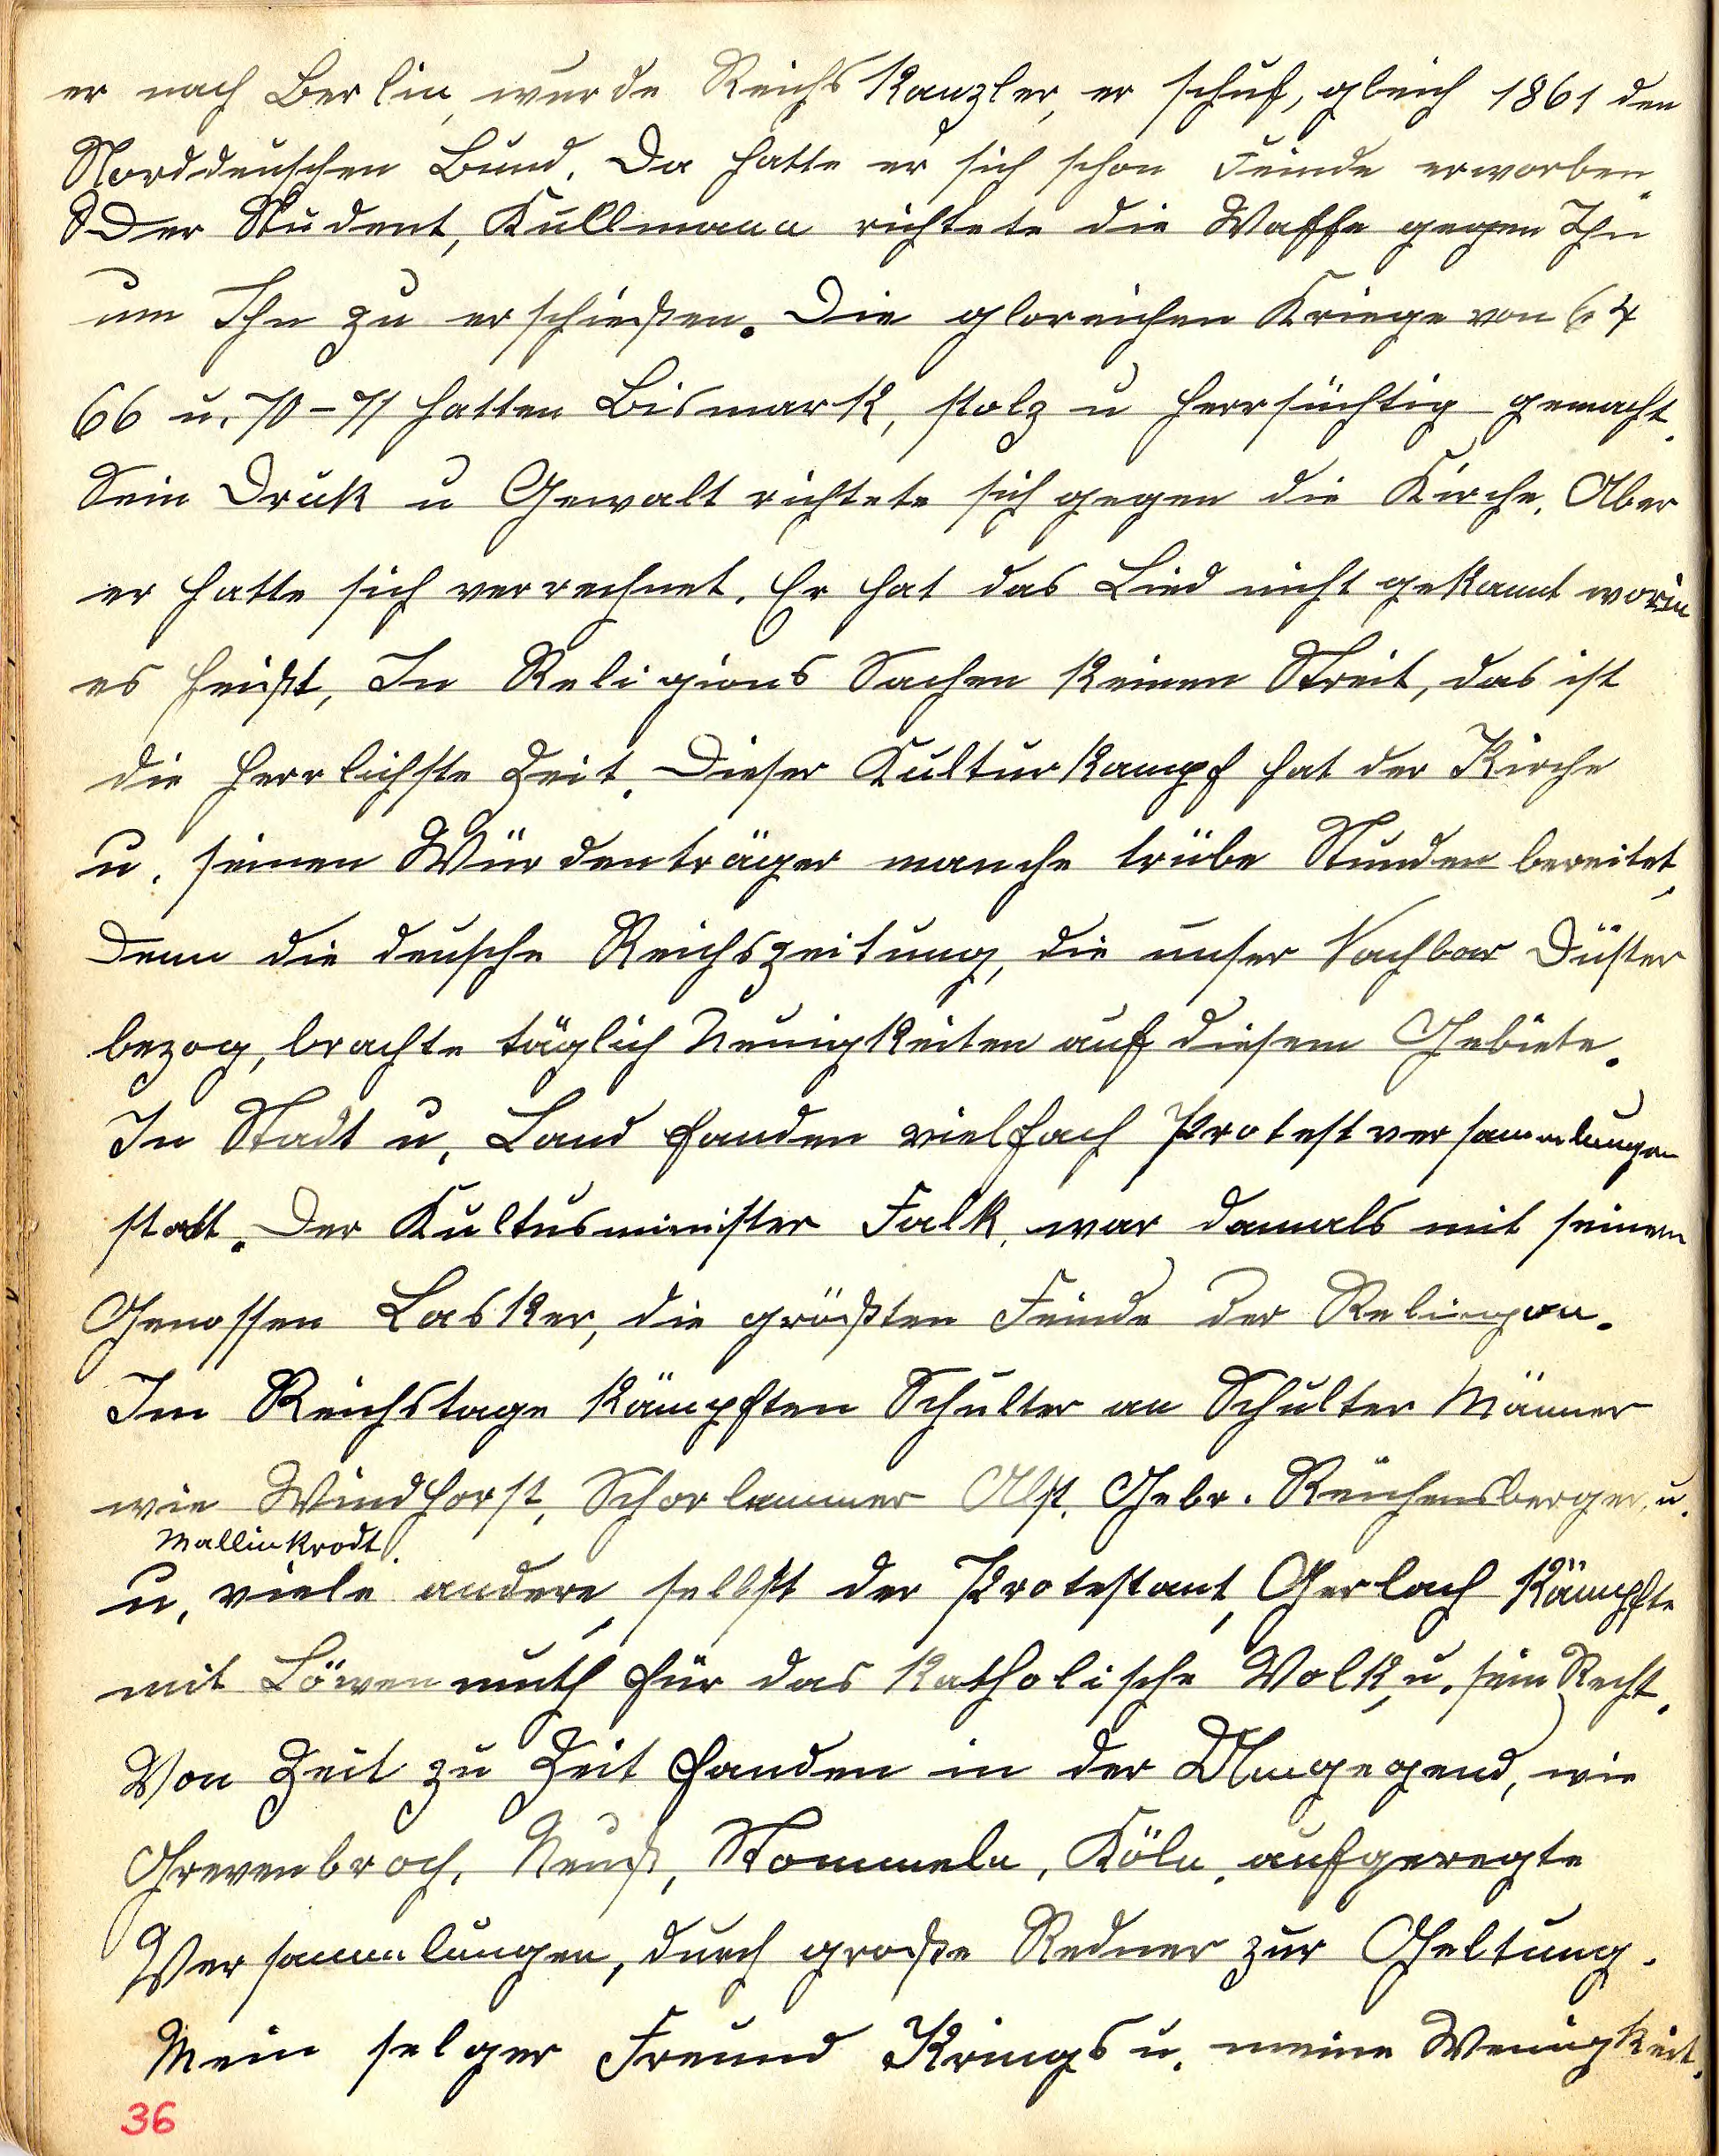 er nach Berlin, wurde Reichs Kanzler, er schuf, gleich 1861 den
Norddeuschen Bund. Da hatte er sich schon Feinde erworben.
Der Student, Kullmann richtete die Waffe gegen Ihn
um Ihn zu erschießen. Die gloreichen Kriege von 64
66 u. 70-71 hatten Bismark, stolz u herrsüchtig gemacht.
Sein Druk u Gewalt richtete sich gegen die Kirche. Aber
er hatte sich verrechnet. Er hat das Lied nicht gekannt worin
es heißt, In Religions Sachen keinen Streit, das ist
die herrlichste Zeit. Dieser Kulturkampf hat der Kirche
u. seinen Würdenträger manche trübe Stunden bereitet,
Denn die deusche Reichszeitung, die unser Nachbar Düster
bezog, brachte täglich Neuigkeiten auf diesem Gebiete.
In Stadt u. Land fanden vielfach Protestversammlungen
statt. Der Kultusminister Falk, war damals mit seinem
Genossen Lasker, die größten Feinde der Religion.
Im Reichstage kämpften Schulter an Schulter Männer
wie Windhorst, Schorlemmer Alst, Gebr. Reichensberger, u.
Mallinkrodt.
u. viele andere, selbst der Protestant, Gerlach kämpfte
mit Löwenmuth für das katholische Volk, u. sein Recht.
Von Zeit zu Zeit fanden in der Umgegend, wie
Grevenbroch, Neuß, Stommeln, Köln, aufgeregte
Versammlungen, durch große Redner zur Geltung.
Mein selger Freund Krings u. meine Wenigkeit.
36